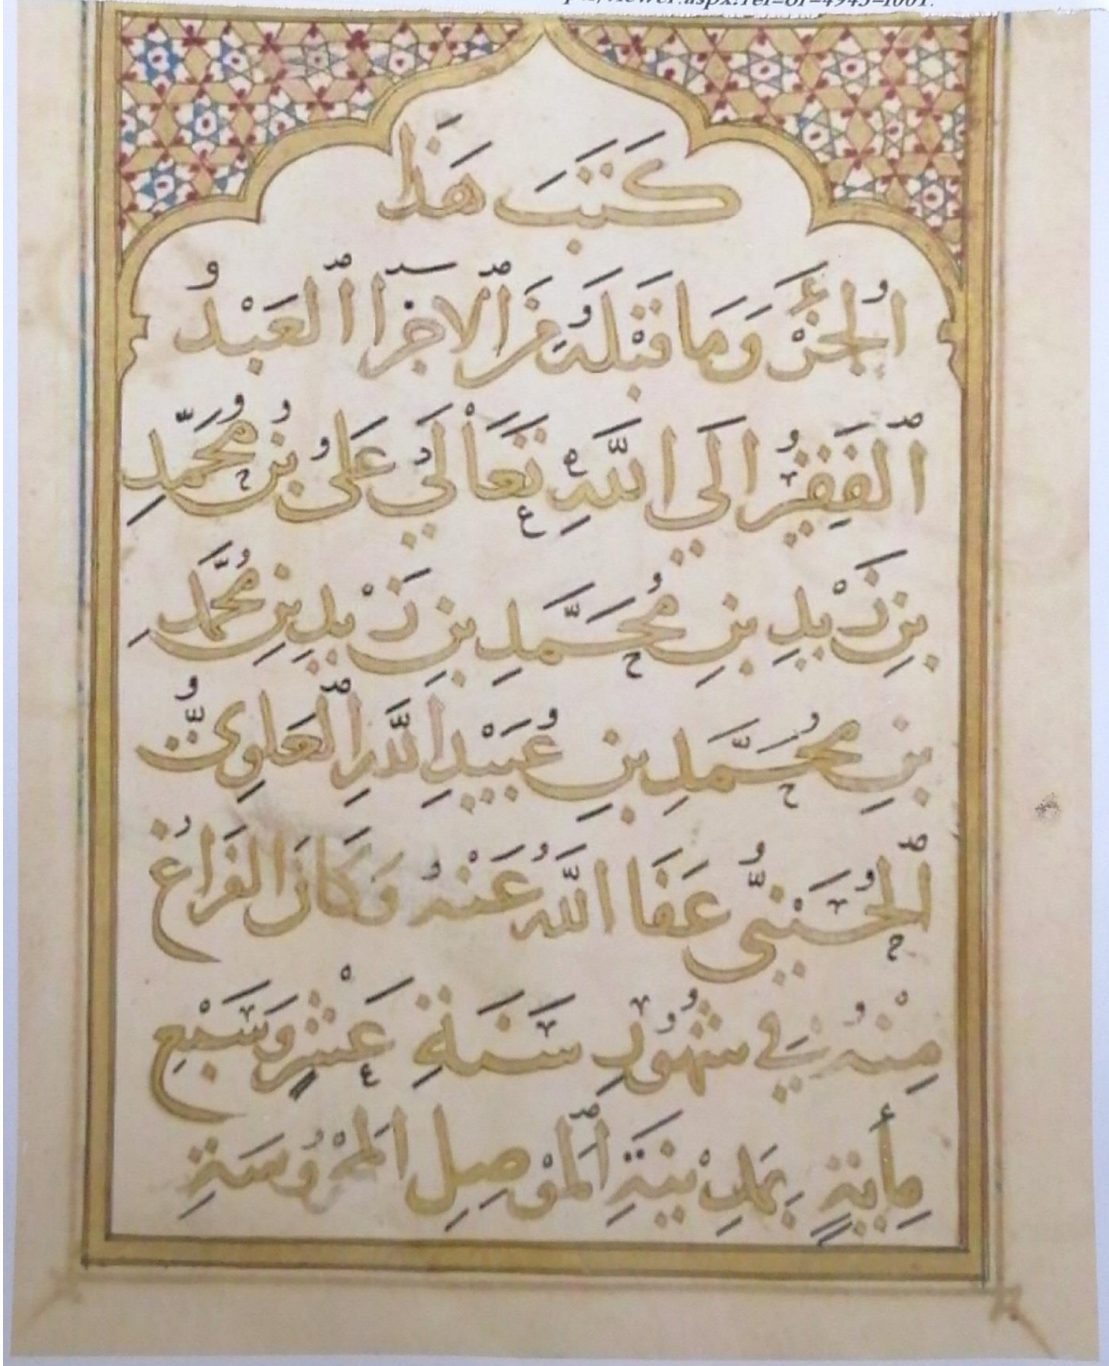 plc/viewer.aspx?ref=or-4945-f001.
كَتَبَ هَذَا
الجُزْءَ وَمَا قَبْلَهُ مِنَ الاجزا العَبْدُ
الفَقِيرُ الَى اللَّهِ تَعَالَى عَلىُ بنُ مُحَمَّدِ
بنِ زَيْدِ بنِ مُحَمَّدِ بنِ زَيْدِ بنِ مُحَمَّدِ
بنِ مُحَمَّدِ بنِ عُبَيْدِ اللَّهِ العَلوِىُّ
الحُسَيْنىُّ عَفَا اللَّهُ عَنْهُ وَكَانَ الفَرَاغُ
مِنْهُ فِي شهُورِ سَنَةِ عَشْرٍ وَسَبْعِ
مِأَيةٍ بِمَدِيْنَةِ المَوْصِلِ المَحْرُوسَةِ